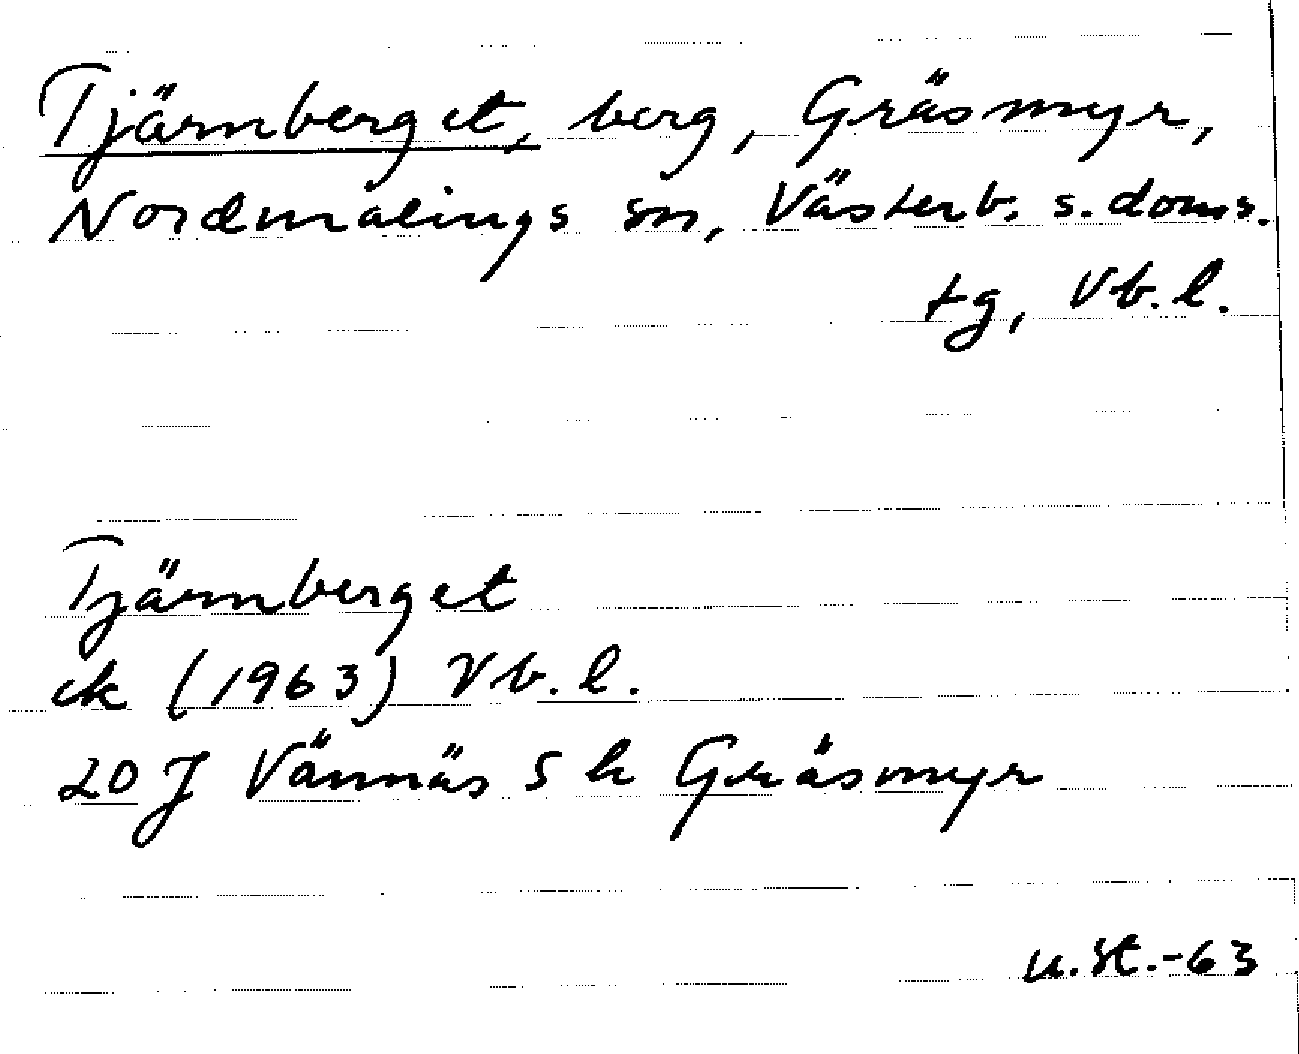 Tjärnberget, berg, Gräsmyr,
Nordmalings sn, Västerb. s. doms.
tg, Vb. l.
Tjärnberget
ek (1963) Vb. l.
20 J Vännäs 5 h Gräsmyr
u.St.-63